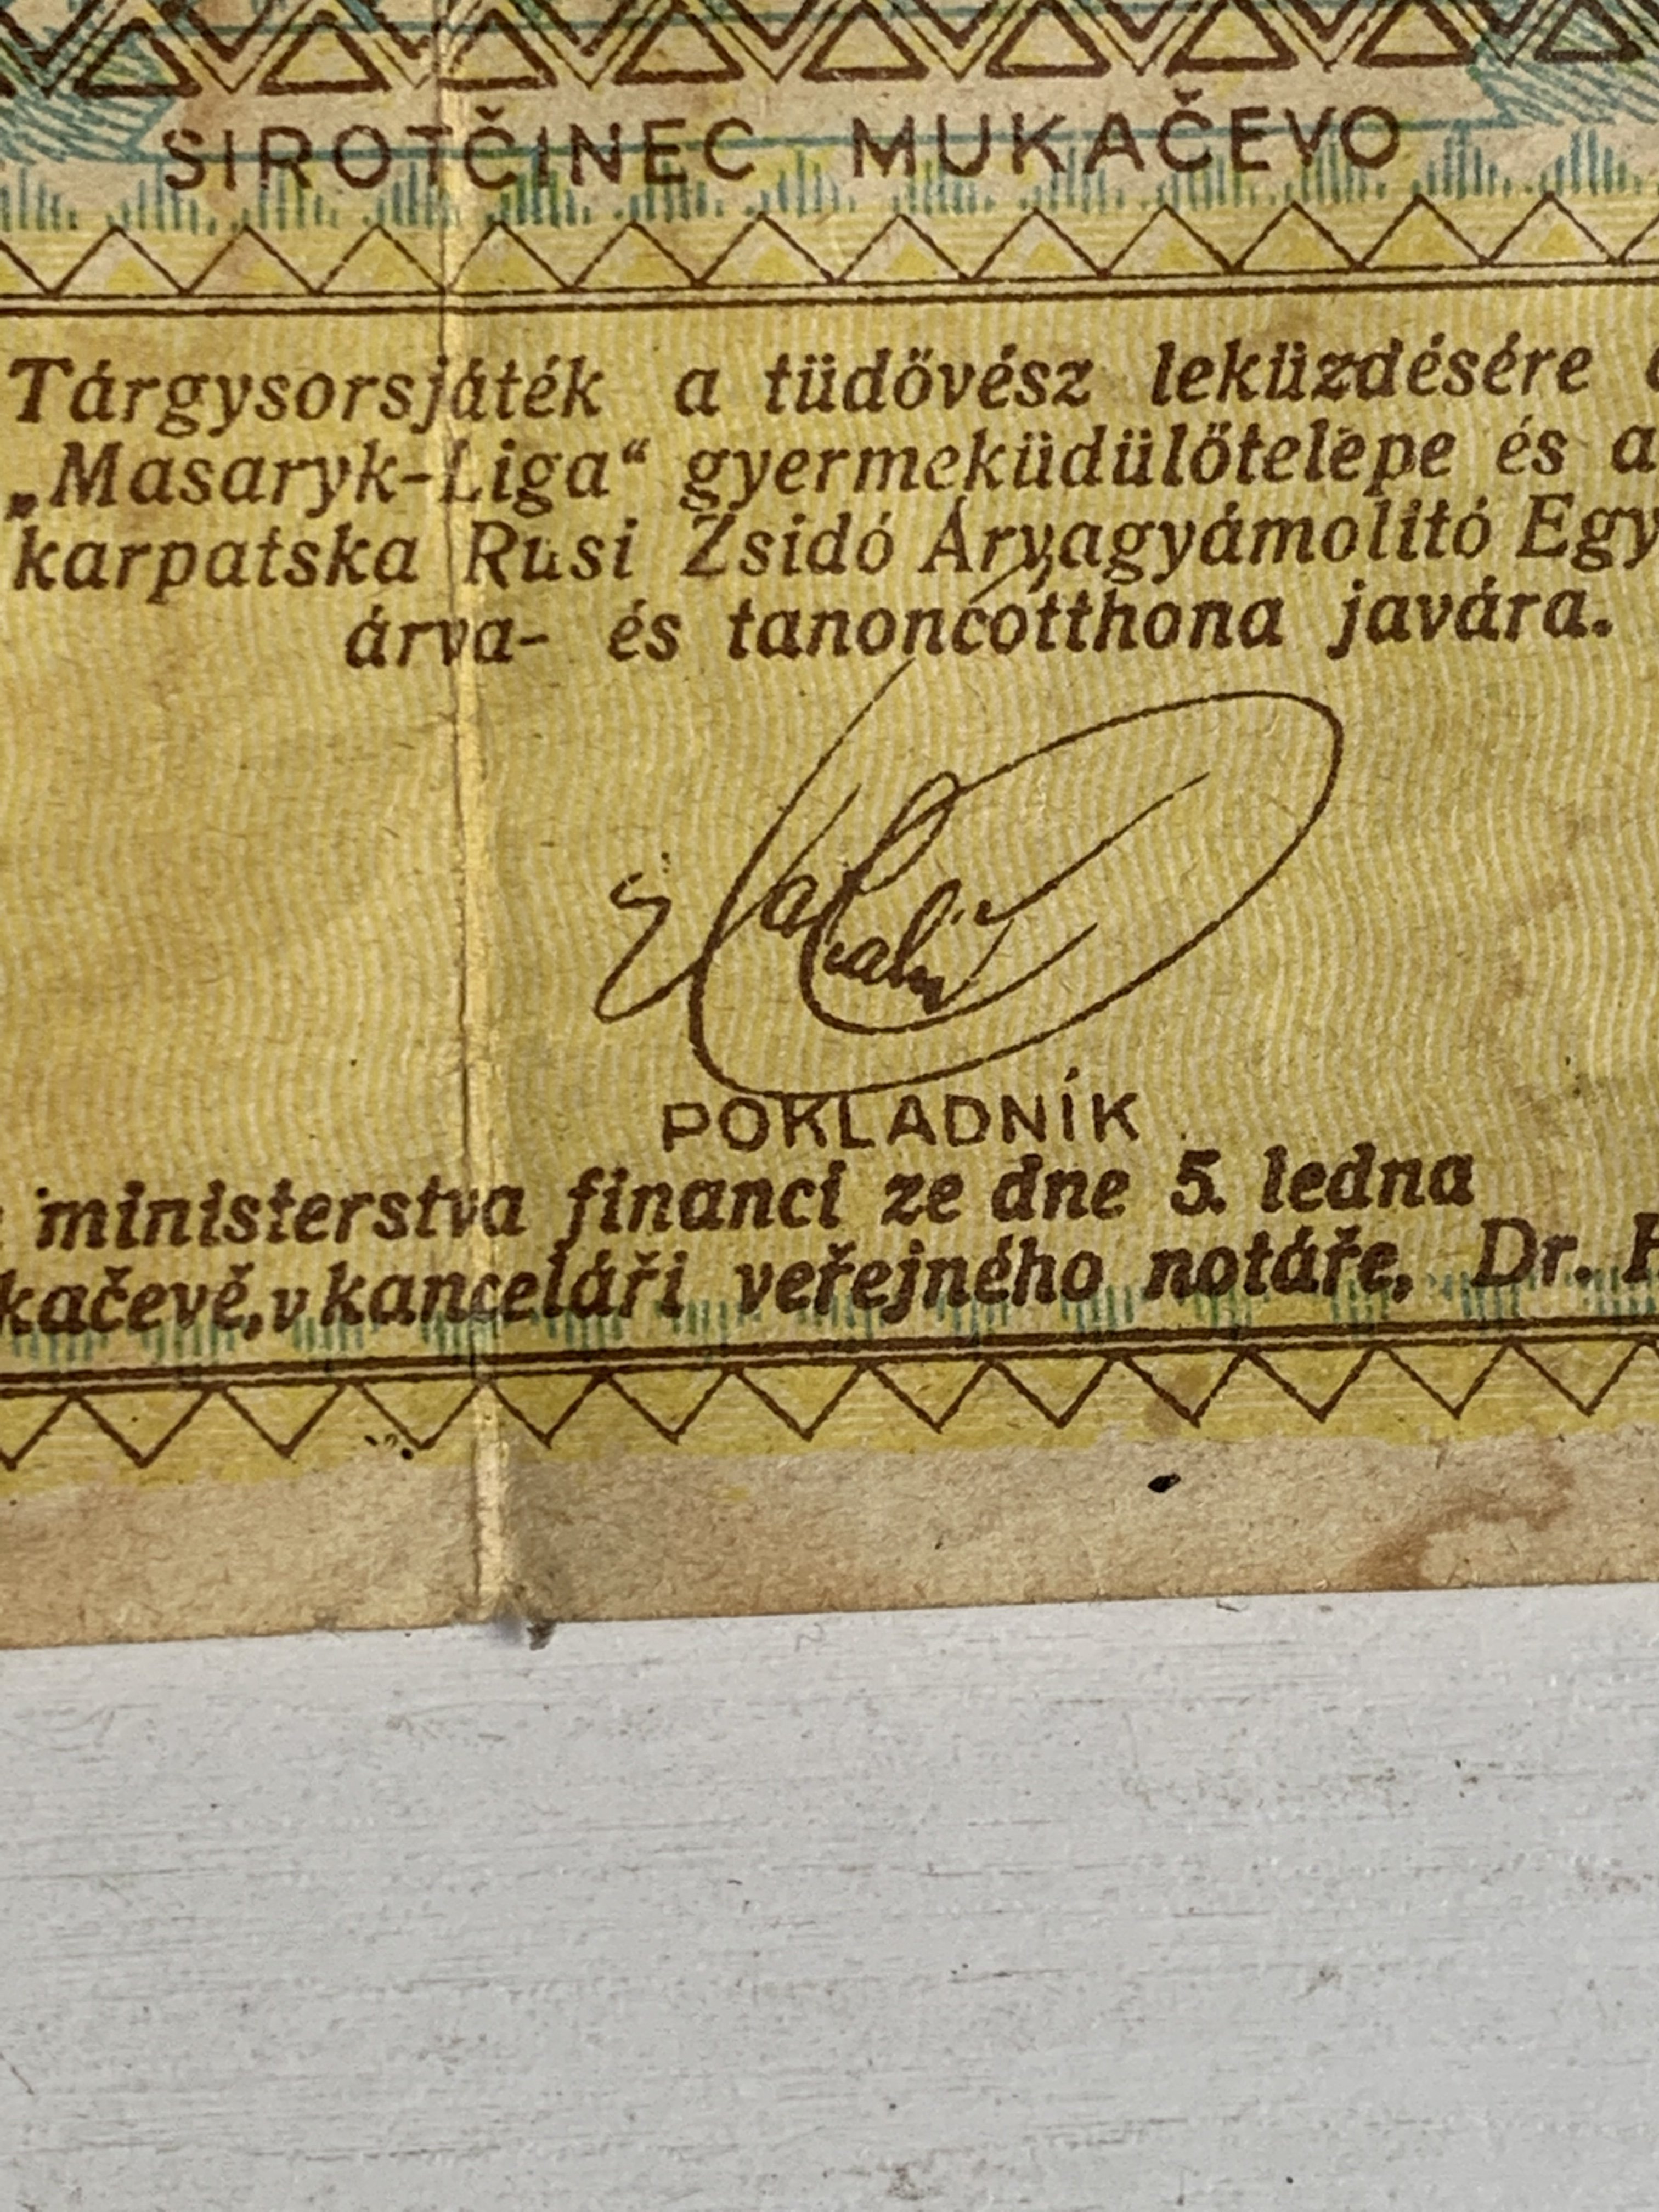 SIROTČINEC MUKAČEVO
Tárgysorsjáték a tüdővész leküzdésére
„Masaryk-Liga“ gyermeküdülőtelepe és a
karpatska Rusi Zsidó Árvagyámolító Egy
árva- és tanoncotthona javára.
POKLADNÍK
ministerstva financí ze dne 5. ledna
kačevě, v kanceláři veřejného notáře, Dr.